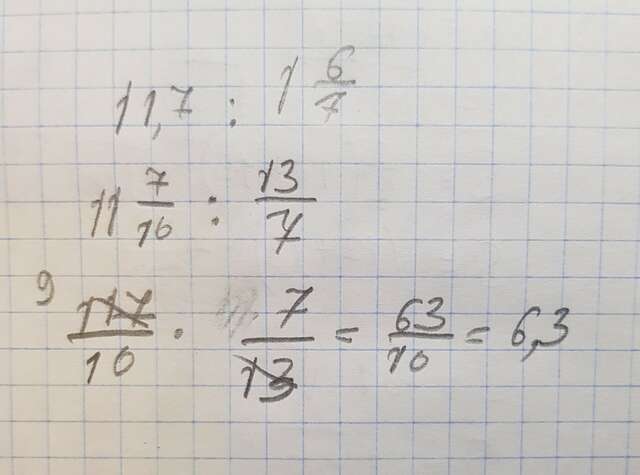 11,7 : 1 6/7
11 7/10 : 13/7
9 117/10 · 7/13 = 63/10 = 6,3